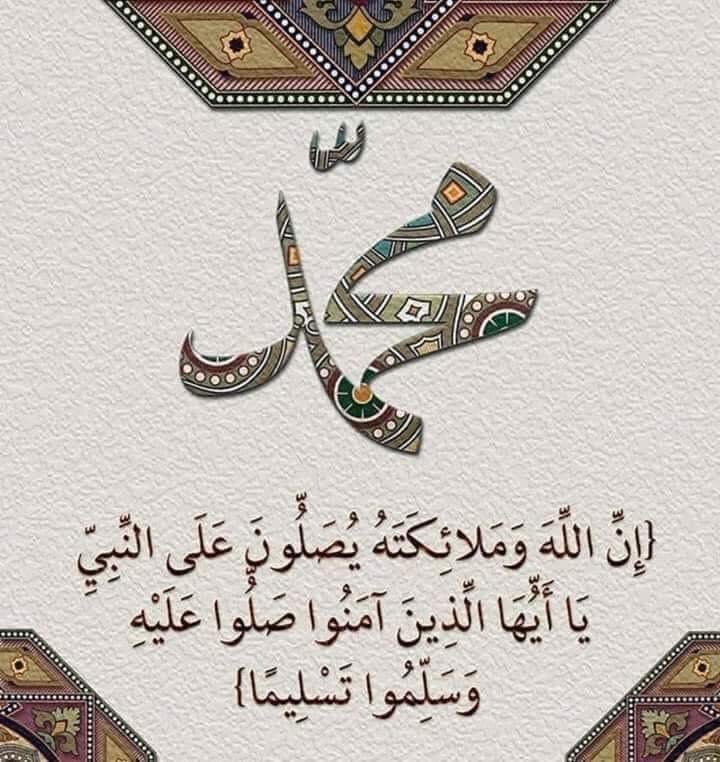 محمد
{إِنَّ اللَّهَ وَمَلائِكَتَهُ يُصَلُّونَ عَلَى النَّبِيِّ
يَا أَيُّهَا الَّذِينَ آمَنُوا صَلُّوا عَلَيْهِ
وَسَلِّمُوا تَسْلِيمًا}